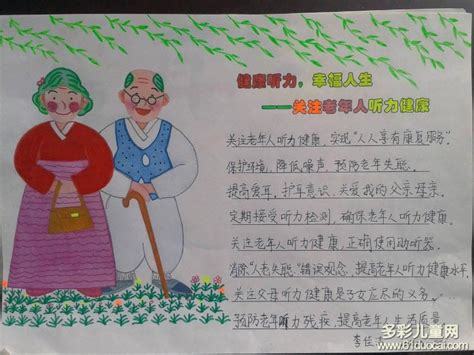 健康听力，幸福人生
——关注老年人听力健康
关注老年人听力健康，实现“人人享有康复服务”。
保护环境，降低噪声，预防老年失聪。
提高爱耳、护耳意识、关爱我的父亲母亲。
定期接受听力检测，确保老年人听力健康。
关注老年人听力健康，正确使用助听器。
消除“人老失聪”错误观念，提高老年人听力健康水平。
关注父母听力健康是子女应尽的义务。
预防老年听力残疾，提高老年人生活质量
李佳
多彩儿童网
www.61duocai.com